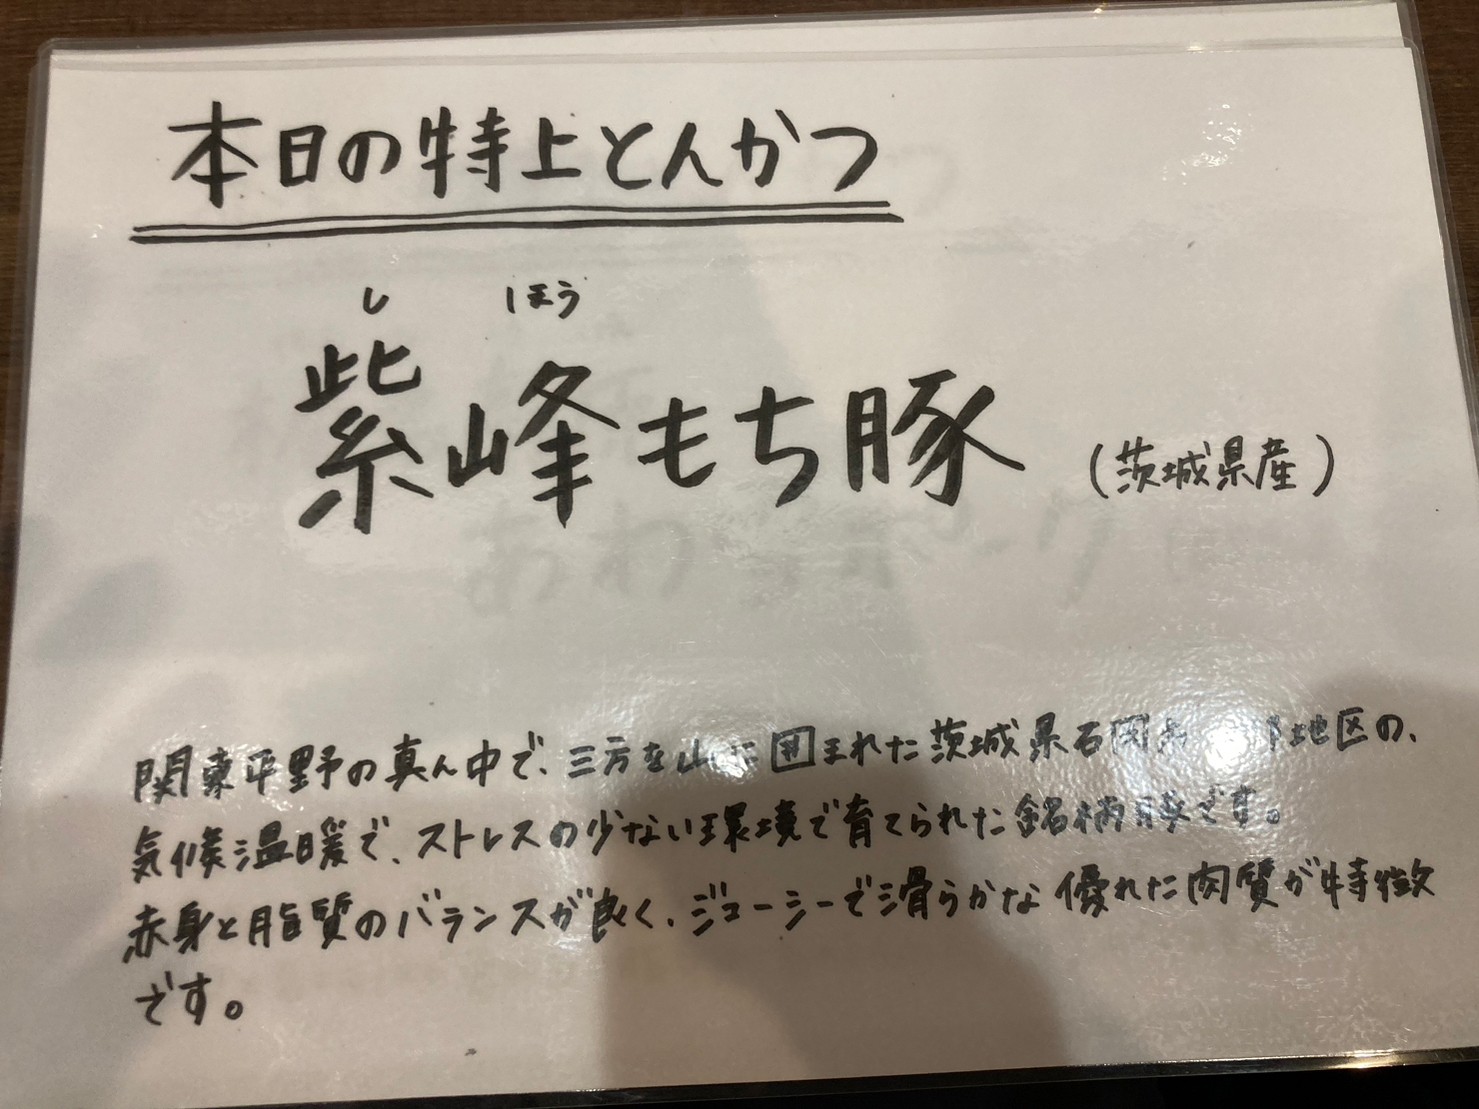 本日の特上とんかつ
し ほう
紫峰もち豚 (茨城県産)
関東平野の真ん中で、三方を山に囲まれた茨城県石岡市 地区の、
気候温暖で、ストレスの少ない環境で育てられた銘柄豚です。
赤身と脂質のバランスが良く、ジューシーで滑らかな優れた肉質が特徴
です。